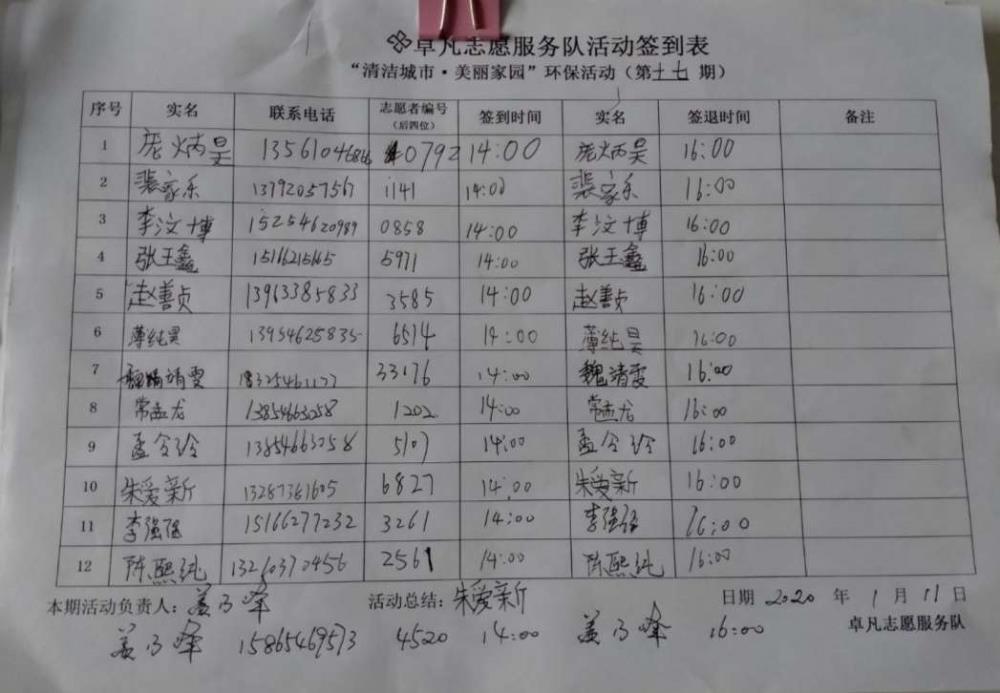 卓凡志愿服务队活动签到表
“清洁城市·美丽家园”环保活动（第十七期）
序号 实名 联系电话 志愿者编号（后四位） 签到时间 实名 签退时间 备注
1 庞炳昊 0792 14:00 庞炳昊 16:00
2 裴家乐 13792057567 1141 14:00 裴家乐 16:00
3 李汶博 15254620989 0858 14:00 李汶博 16:00
4 张玉鑫 5971 14:00 张玉鑫 16:00
5 赵善贞 13963385833 3585 14:00 赵善贞 16:00
6 薄纯昊 13954625835 6514 14:00 薄纯昊 16:00
7 魏靖雯 33176 14:00 魏靖雯 16:00
8 常孟龙 13854663058 1202 14:00 常孟龙 16:00
9 孟令玲 13854663058 5107 14:00 孟令玲 16:00
10 朱爱新 13287361605 6827 14:00 朱爱新 16:00
11 李强强 15166277232 3261 14:00 李强强 16:00
12 陈熙纯 2561 14:00 陈熙纯 16:00
本期活动负责人：姜乃峰 活动总结：朱爱新 日期 2020 年 1 月 11 日
姜乃峰 15865469573 4520 14:00 姜乃峰 16:00 卓凡志愿服务队